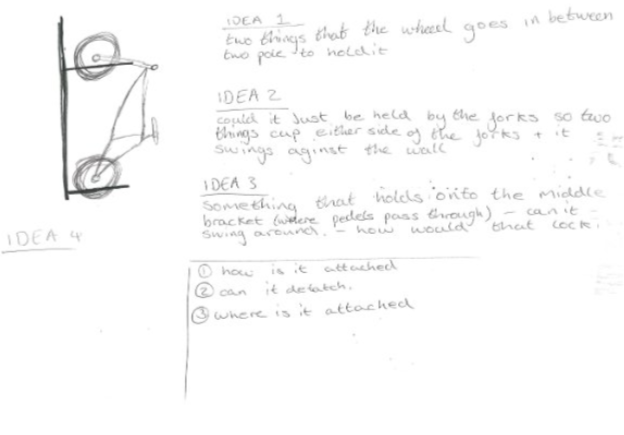 IDEA 1
two things that the wheel goes in between
two pole to hold it
IDEA 2
could it Just be held by the forks so two
things cup either side of the forks + it
swings aginst the wall
IDEA 3
something that holds onto the middle
bracket (where pedels pass through) - can it
swing around. - how would that lock.
IDEA 4
① how is it attached
② can it detatch.
③ where is it attached